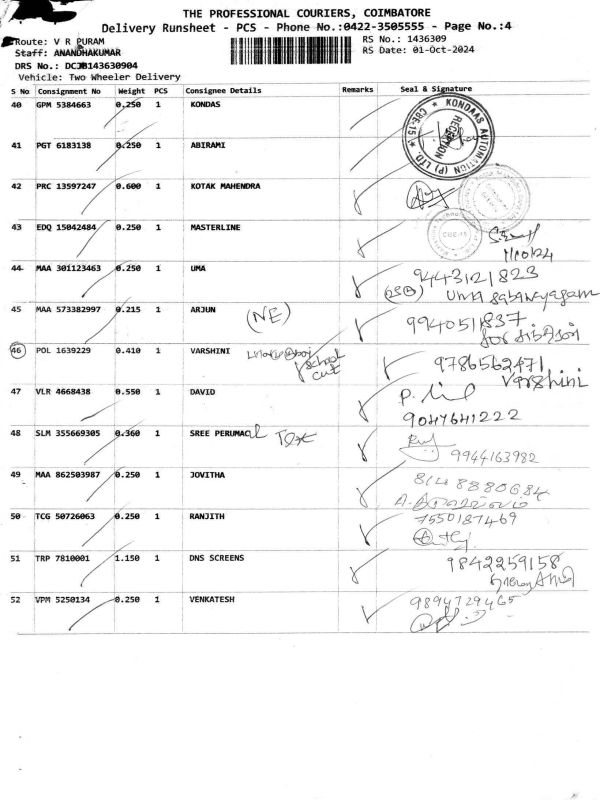 THE PROFESSIONAL COURIERS, COIMBATORE
Delivery Runsheet - PCS - Phone No.:0422-3505555 - Page No.:4
Route: V R PURAM
RS No.: 1436309
Staff: ANANDHAKUMAR
RS Date: 01-Oct-2024
DRS No.: DCJB143630904
Vehicle: Two Wheeler Delivery
S No Consignment No Weight PCS Consignee Details Remarks Seal & Signature
40 GPM 5384663 0.250 1 KONDAS
KONDAAS AUTOMATION (P) LTD. * CBE-15 *
RECEPTION
41 PGT 6183138 0.250 1 ABIRAMI
42 PRC 13597247 0.600 1 KOTAK MAHENDRA
43 EDQ 15042484 0.250 1 MASTERLINE
CBE-15
44 MAA 301123463 0.250 1 UMA 9443121823
45 MAA 573382997 0.215 1 ARJUN (NE) 9940511837
46 POL 1639229 0.410 1 VARSHINI school cut 9786562471
Varshini
47 VLR 4668438 0.550 1 DAVID
9047641222
48 SLM 355669305 0.360 1 SREE PERUMAL Tex
9944163982
49 MAA 862503987 0.250 1 JOVITHA 8148880684
50 TCG 50726063 0.250 1 RANJITH 7550187469
51 TRP 7810001 1.150 1 DNS SCREENS 9842259158
52 VPM 5250134 0.250 1 VENKATESH 9894729465